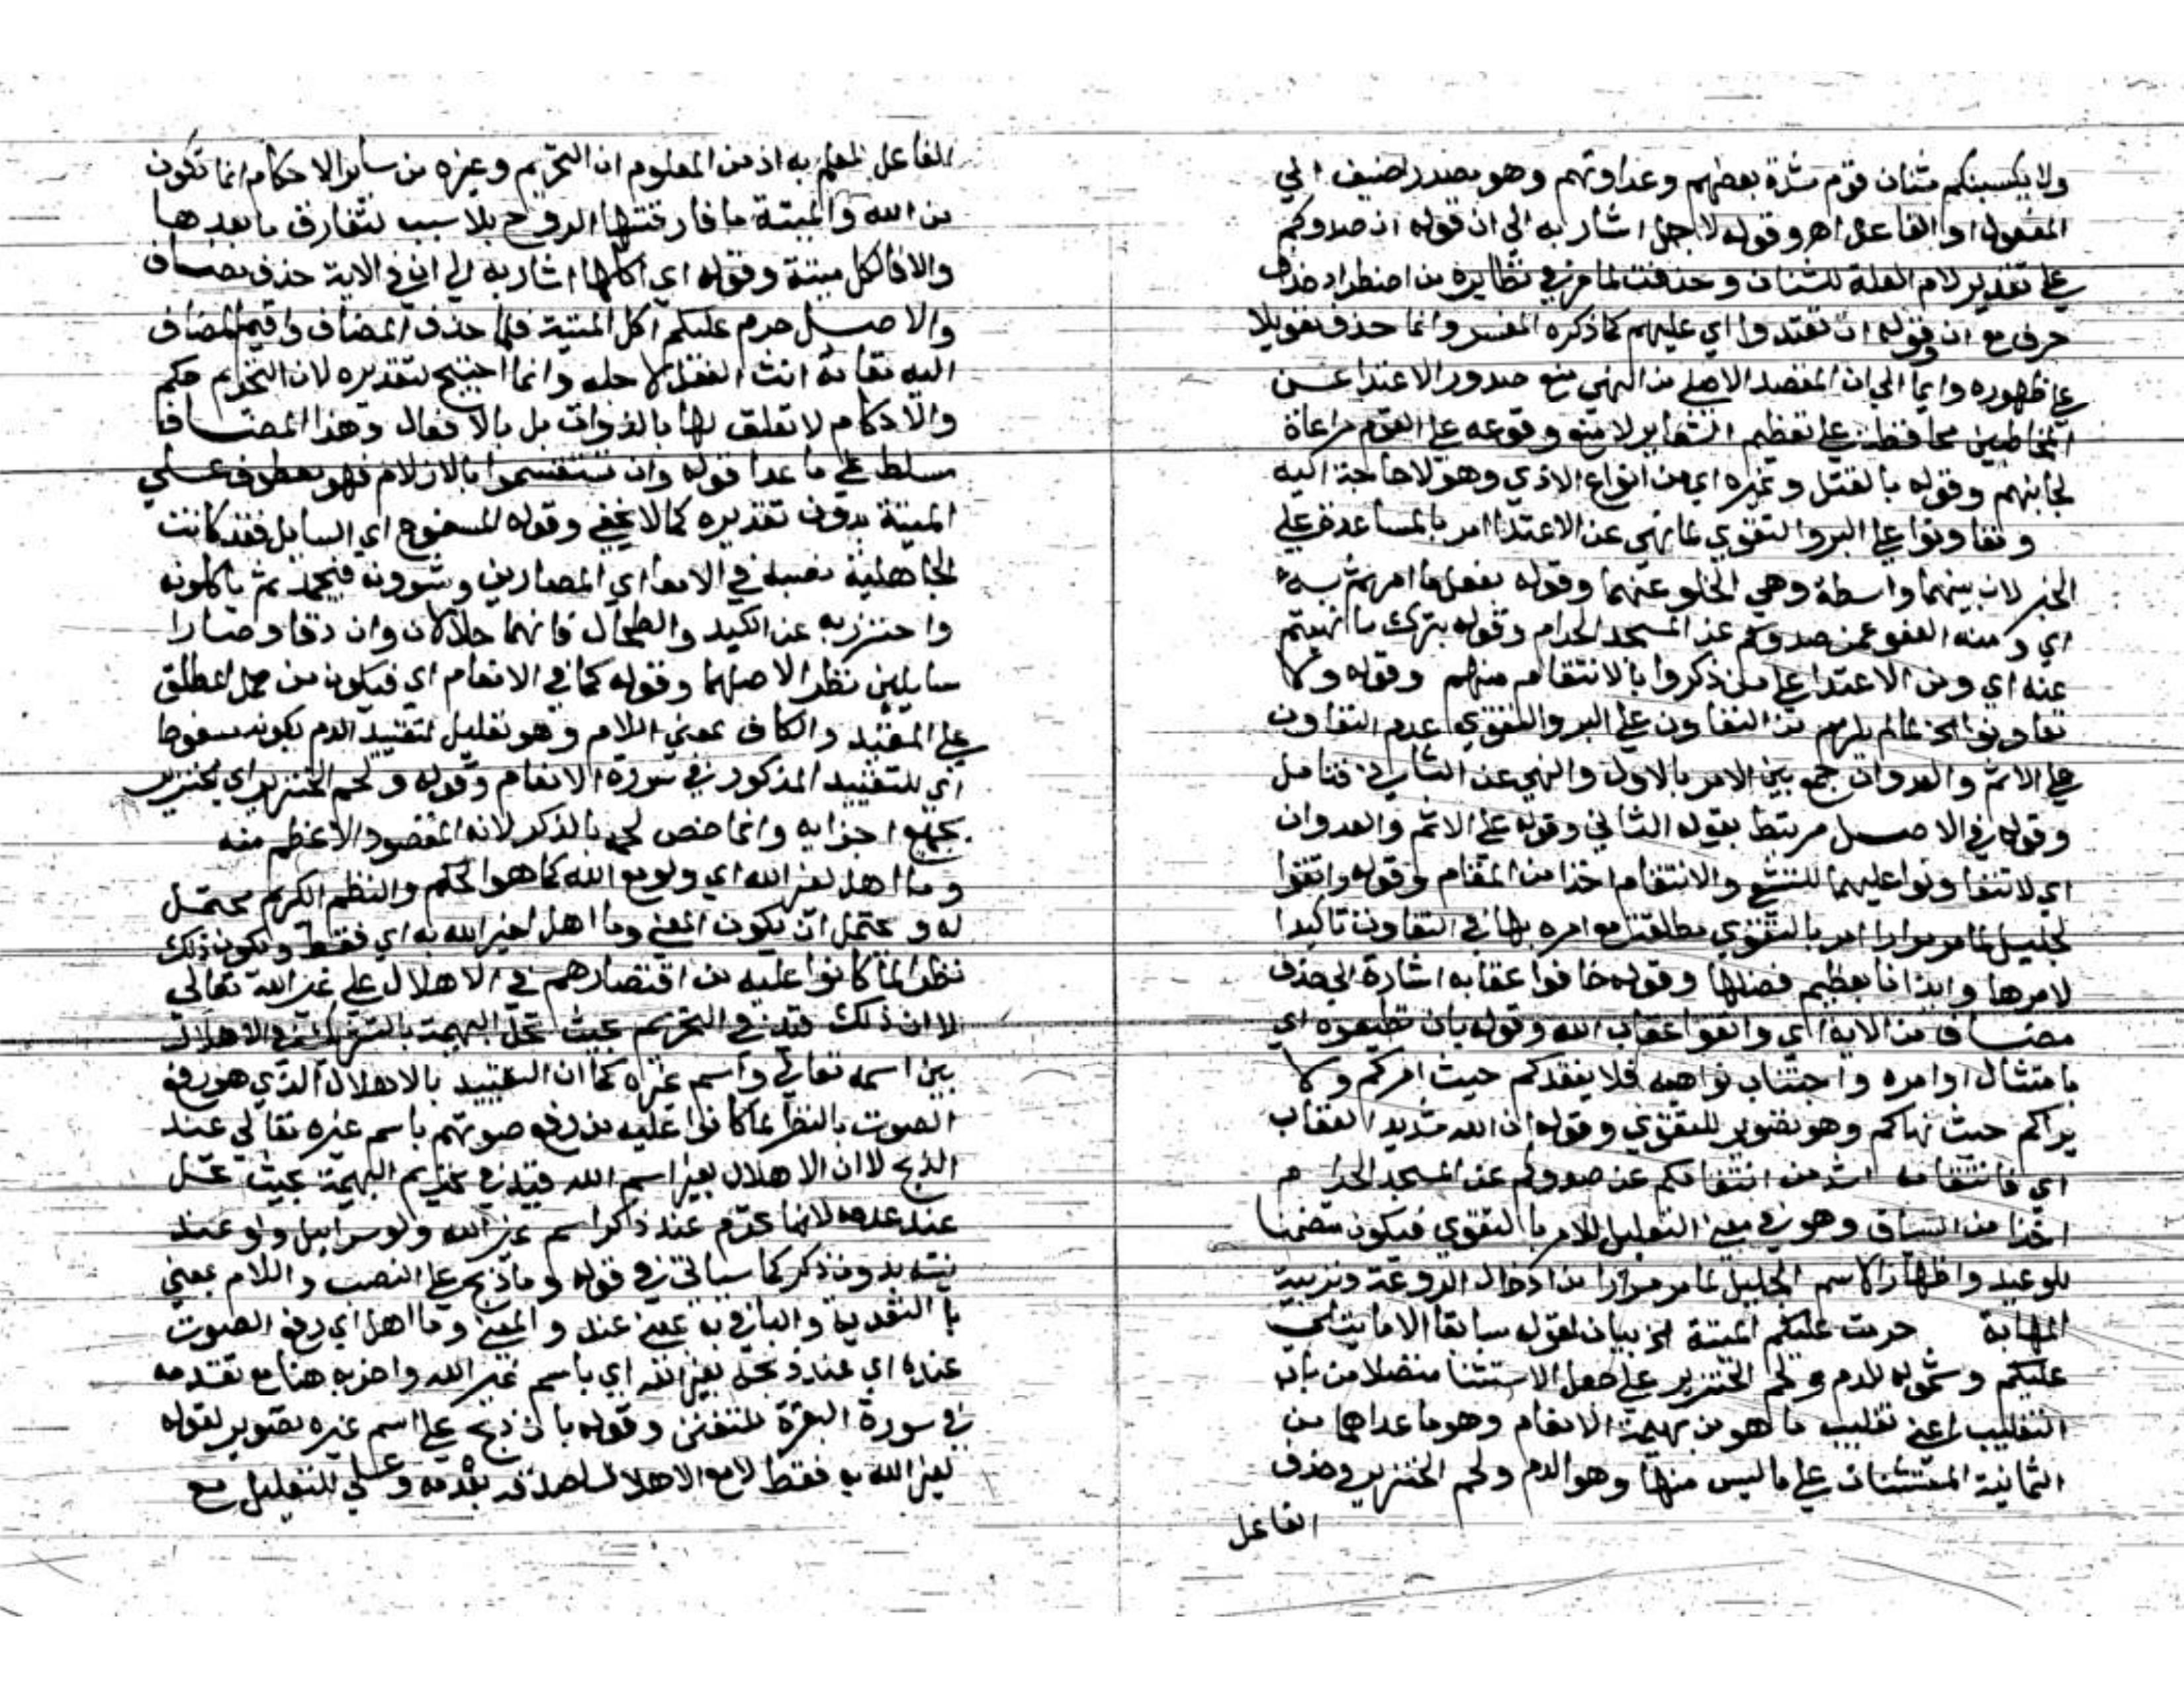 ولا يكسبنكم شنان قوم شدة بعضهم وعداوتهم وهو مصدر اضيف الي
المفعول او الفاعل اهـ وقوله لاجل اشار به الي ان قوله ان صدوكم
علي تقدير لام العلة للشنان وحذفت لما مر في نظايره من اضطراد حذف
حرف مع ان وقوله ان تعتدوا اي عليهم كما ذكره المفسر وانما حذف تعويلا
علي ظهوره وايما الي ان المقصد الاصلي من النهي منع صدور الاعتدا عن
المخاطبين محافظة علي تعظيم الشعاير لا منع وقوعه علي القوم مراعاة
لجانبهم وقوله بالقتل وغيره اي من انواع الاذي وهو لا حاجة اليه
وتعاونوا علي البر والتقوي لما نهي عن الاعتدا امر بالمساعدة علي
الخير لان بينهما واسطة وهي الخلو عنهما وقوله بفعل ما امرتم به
اي ومنه العفو عمن صدوكم عن المسجد الحرام وقوله بترك ما نهيتم
عنه اي ومن الاعتدا علي من ذكروا بالانتقام منهم وقوله ولا
تعاونوا الخ لما لم يلزم من التعاون علي البر والتقوي عدم التعاون
علي الاثم والعدوان جمع بين الامر بالاول والنهي عن الثاني فتامل
وقوله في الاصل مرتبط بقوله الثاني وقوله علي الاثم والعدوان
اي لا تتعاونوا عليهما للتشفي والانتقام اخذا من المقام وقوله واتقوا
لجليل لما مر مرارا امر بالتقوي مطلقة مع امره بها في التعاون تاكيدا
لامرها وايذانا بعظيم فضلها وقوله خافوا عقابه اشارة الي حذف
مضاف من الاية اي واتقوا عقاب الله وقوله بان تطيعوه اي
بامتثال اوامره واجتناب نواهيه فلا يفقدكم حيث امركم ولا
يراكم حيث نهاكم وهو تصوير للتقوي وقوله ان الله شديد العقاب
اي فانتقامه اشد من انتقامكم عن صدوكم عن المسجد الحرام
اخذا من السياق وهو في معني التعليل للامر بالتقوي فيكون متضمنا
للوعيد واظهار الاسم الجليل لما مر مرارا من ادخال الروعة وتربية
المهابة حرمت عليكم الميتة الخ بيان لقوله سابقا الا ما يتلي
عليكم وشموله للدم ولحم الخنزير علي جعل الاستثنا متصلا من باب
التغليب اعني تغليب ما هو من بهيمة الانعام وهو ما عداهما من
الثمانية المستثنات علي ما ليس منها وهو الدم ولحم الخنزير وحذف
الفاعل
الفاعل للعلم به اذ من المعلوم ان التحريم وغيره من ساير الاحكام انما تكون
من الله والميتة ما فارقتها الروح بلا سبب لتفارق ما بعدها
والا فالكل ميتة وقوله اي اكلها اشار به الي ان في الاية حذف مضاف
والاصل حرم عليكم اكل الميتة فلما حذف المضاف واقيم المضاف
اليه مقامه انث الفعل لاجله وانما احتيج لتقديره لان التحريم حكم
والاحكام لا تعلق لها بالذوات بل بالافعال وهذا المضاف
مسلط علي ما عدا قوله وان تستقسموا بالازلام فهو معطوف علي
الميتة بدون تقديره كما لا يخفي وقوله المسفوح اي السايل فقد كانت
الجاهلية تصبه في الامعا اي المصارين ويشوونه فيجمد ثم ياكلونه
واحترز به عن الكبد والطحال فانهما حلالان وان دقا وصارا
سايلين نظرا لاصلهما وقوله كما في الانعام اي فيكون من حمل المطلق
علي المقيد والكاف بمعني اللام وهو تعليل لتقييد الدم بكونه مسفوحا
اي للتقييد المذكور في سورة الانعام وقوله ولحم الخنزير اي الخنزير
بجميع اجزايه وانما خص لحمه بالذكر لانه المقصود الاعظم منه
وما اهل لغير الله اي ولو مع الله كما هو الحكم والنظم الكريم محتمل
له ويحتمل ان يكون المعني وما اهل لغير الله به اي فقط ويكون ذلك
نظرا لما كانوا عليه من اقتصارهم في الاهلال علي غير الله تعالي
لا ان ذلك قيد في التحريم بحيث تحل البهيمة بالتشريك في الاهلال
بين اسمه تعالي واسم غيره كما ان التقييد بالاهلال الذي هو رفع
الصوت بالنظر لما كانوا عليه من رفع صوتهم باسم غيره تعالي عند
الذبح لا ان الاهلال بغير اسم الله قيد في تحريم البهيمة بحيث تحل
عند عدمه لانها تحرم عند ذاكرا اسم غير الله ولو سرا بل ولو عند
نيته بدون ذكر كما سياتي في قوله وما ذبح علي النصب واللام بمعني
با التعدية والبا في به بمعني عند والمعني وما اهل اي رفع الصوت
عنده اي عند ذبحه بغير الله اي باسم غير الله واخر به هنا مع تقدمه
في سورة البقرة للتفنن وقوله بان ذبح علي اسم غيره تصوير لقوله
لغير الله به فقط لا مع الاهلال وعلي للتعليل مع